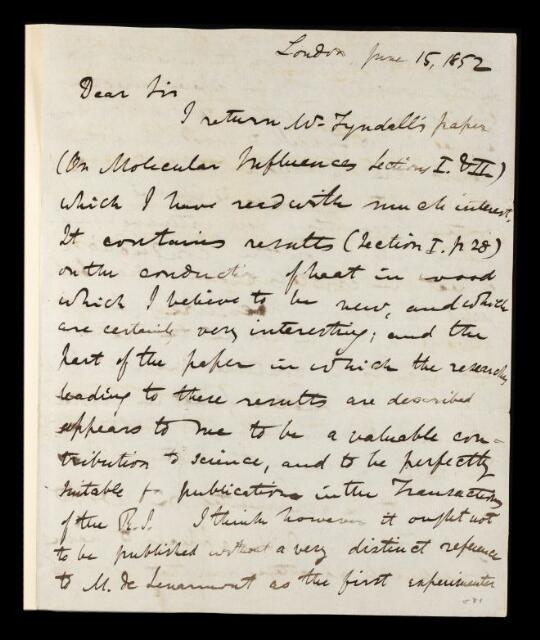 London June 15, 1852
Dear Sir
I return Mr Tyndall's paper
(On Molecular Influences Sections I. & II.)
which I have read with much interest.
It contains results (Section I. p. 28)
on the conduction of heat in wood
which I believe to be new, and which
are certainly very interesting; and the
part of the paper in which the researches
leading to these results are described
appears to me to be a valuable con-
tribution to science, and to be perfectly
suitable for publication in the Transactions
of the R.S. I think however it ought not
to be published without a very distinct reference
to M. de Senarmont as the first experimenter